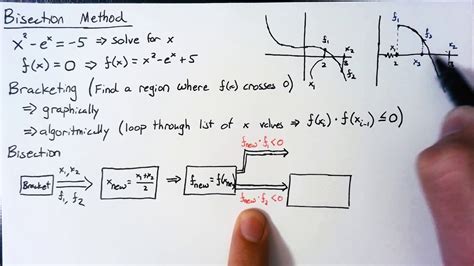 Bisection Method
x² - eˣ = -5 ⇒ solve for x
f(x) = 0 ⇒ f(x) = x² - eˣ + 5
Bracketing (Find a region where f(x) crosses 0)
⇒ graphically
⇒ algorithmically (loop through list of x values ⇒ f(xᵢ)·f(xᵢ₋₁) ≤ 0)
Bisection
Bracket
x₁, x₂
f₁, f₂
x_new = (x₁+x₂)/2
⇒
f_new = f(x_new)
f_new·f₁<0
f_new·f₂<0
x₁
2
f₁
x₂
3
f₂
f₁
f₃
x₂
2
x₃
3